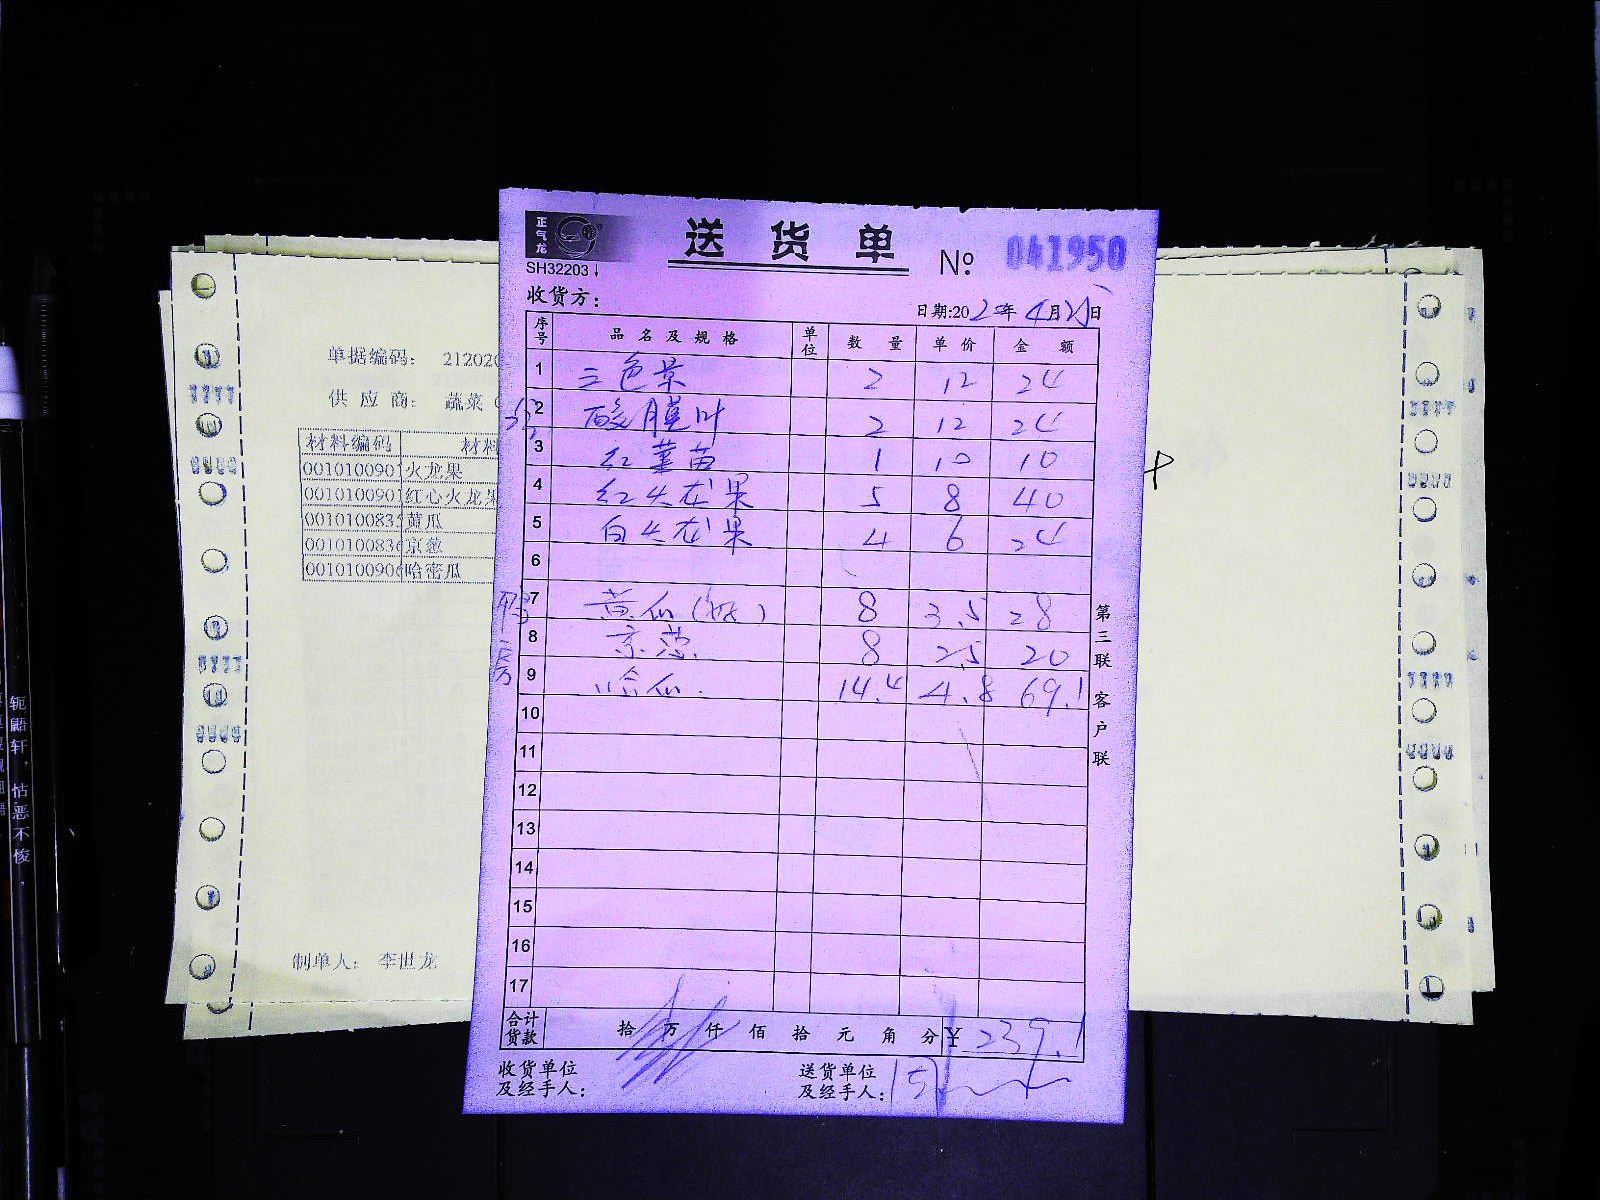 正气龙
送货单
№ 041950
SH32203
收货方：
日期:202 年 4月25日
序号 品名及规格 单位 数量 单价 金额
1 三色景 2 12 24
2 酸膜叶 2 12 24
3 红葉苗 1 10 10
4 红火龙果 5 8 40
5 白火龙果 4 6 24
6
7 黄瓜 8 3.5 28
8 京葱 8 2.5 20
9 哈瓜 14.4 4.8 69.1
10
11
12
13
14
15
16
17
合计货款 拾 万 仟 佰 拾 元 角 分 ¥ 239.1
收货单位及经手人：
送货单位及经手人：
第三联 客户联
单据编码： 212020
供应商： 蔬菜
材料编码 材料
0010100901 火龙果
0010100901 红心火龙果
001010083 黄瓜
001010083 京葱
001010090 哈密瓜
制单人： 李世龙
轭鼯轩，怙恶不悛，